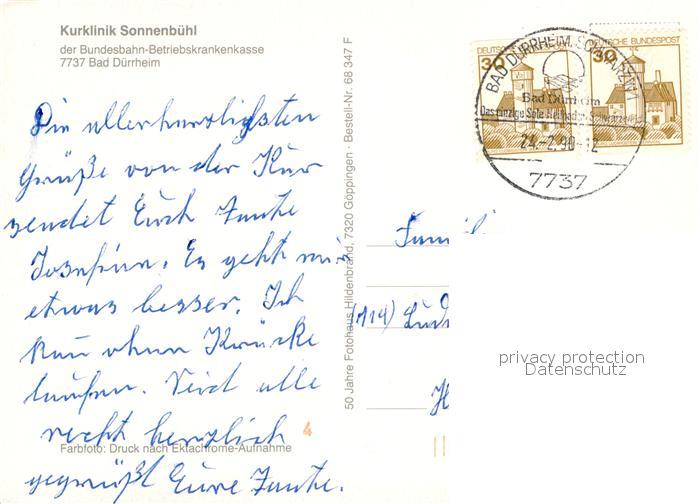 Kurklinik Sonnenbühl
der Bundesbahn-Betriebskrankenkasse
7737 Bad Dürrheim
Die allerherzlichsten
Grüße von der Kur
sendet Euch Tante
Josefine. Es geht mir
etwas besser. Ich
kan ohne Krücke
laufen. Seid alle
recht herzlich
gegrüßt Eure Tante.
Farbfoto: Druck nach Ektachrome-Aufnahme
4
50 Jahre Fotohaus Hildenbrand, 7320 Göppingen · Bestell-Nr. 68 347 F
DEUTSCHE BUNDESPOST
30
30
BAD DÜRRHEIM, SCHWARZW 1
Bad Dürrheim
Das einzige Sole-Heilbad im Schwarzwald
24.-2.90-12
7737
Famili
(114) Lud
H
privacy protection
Datenschutz